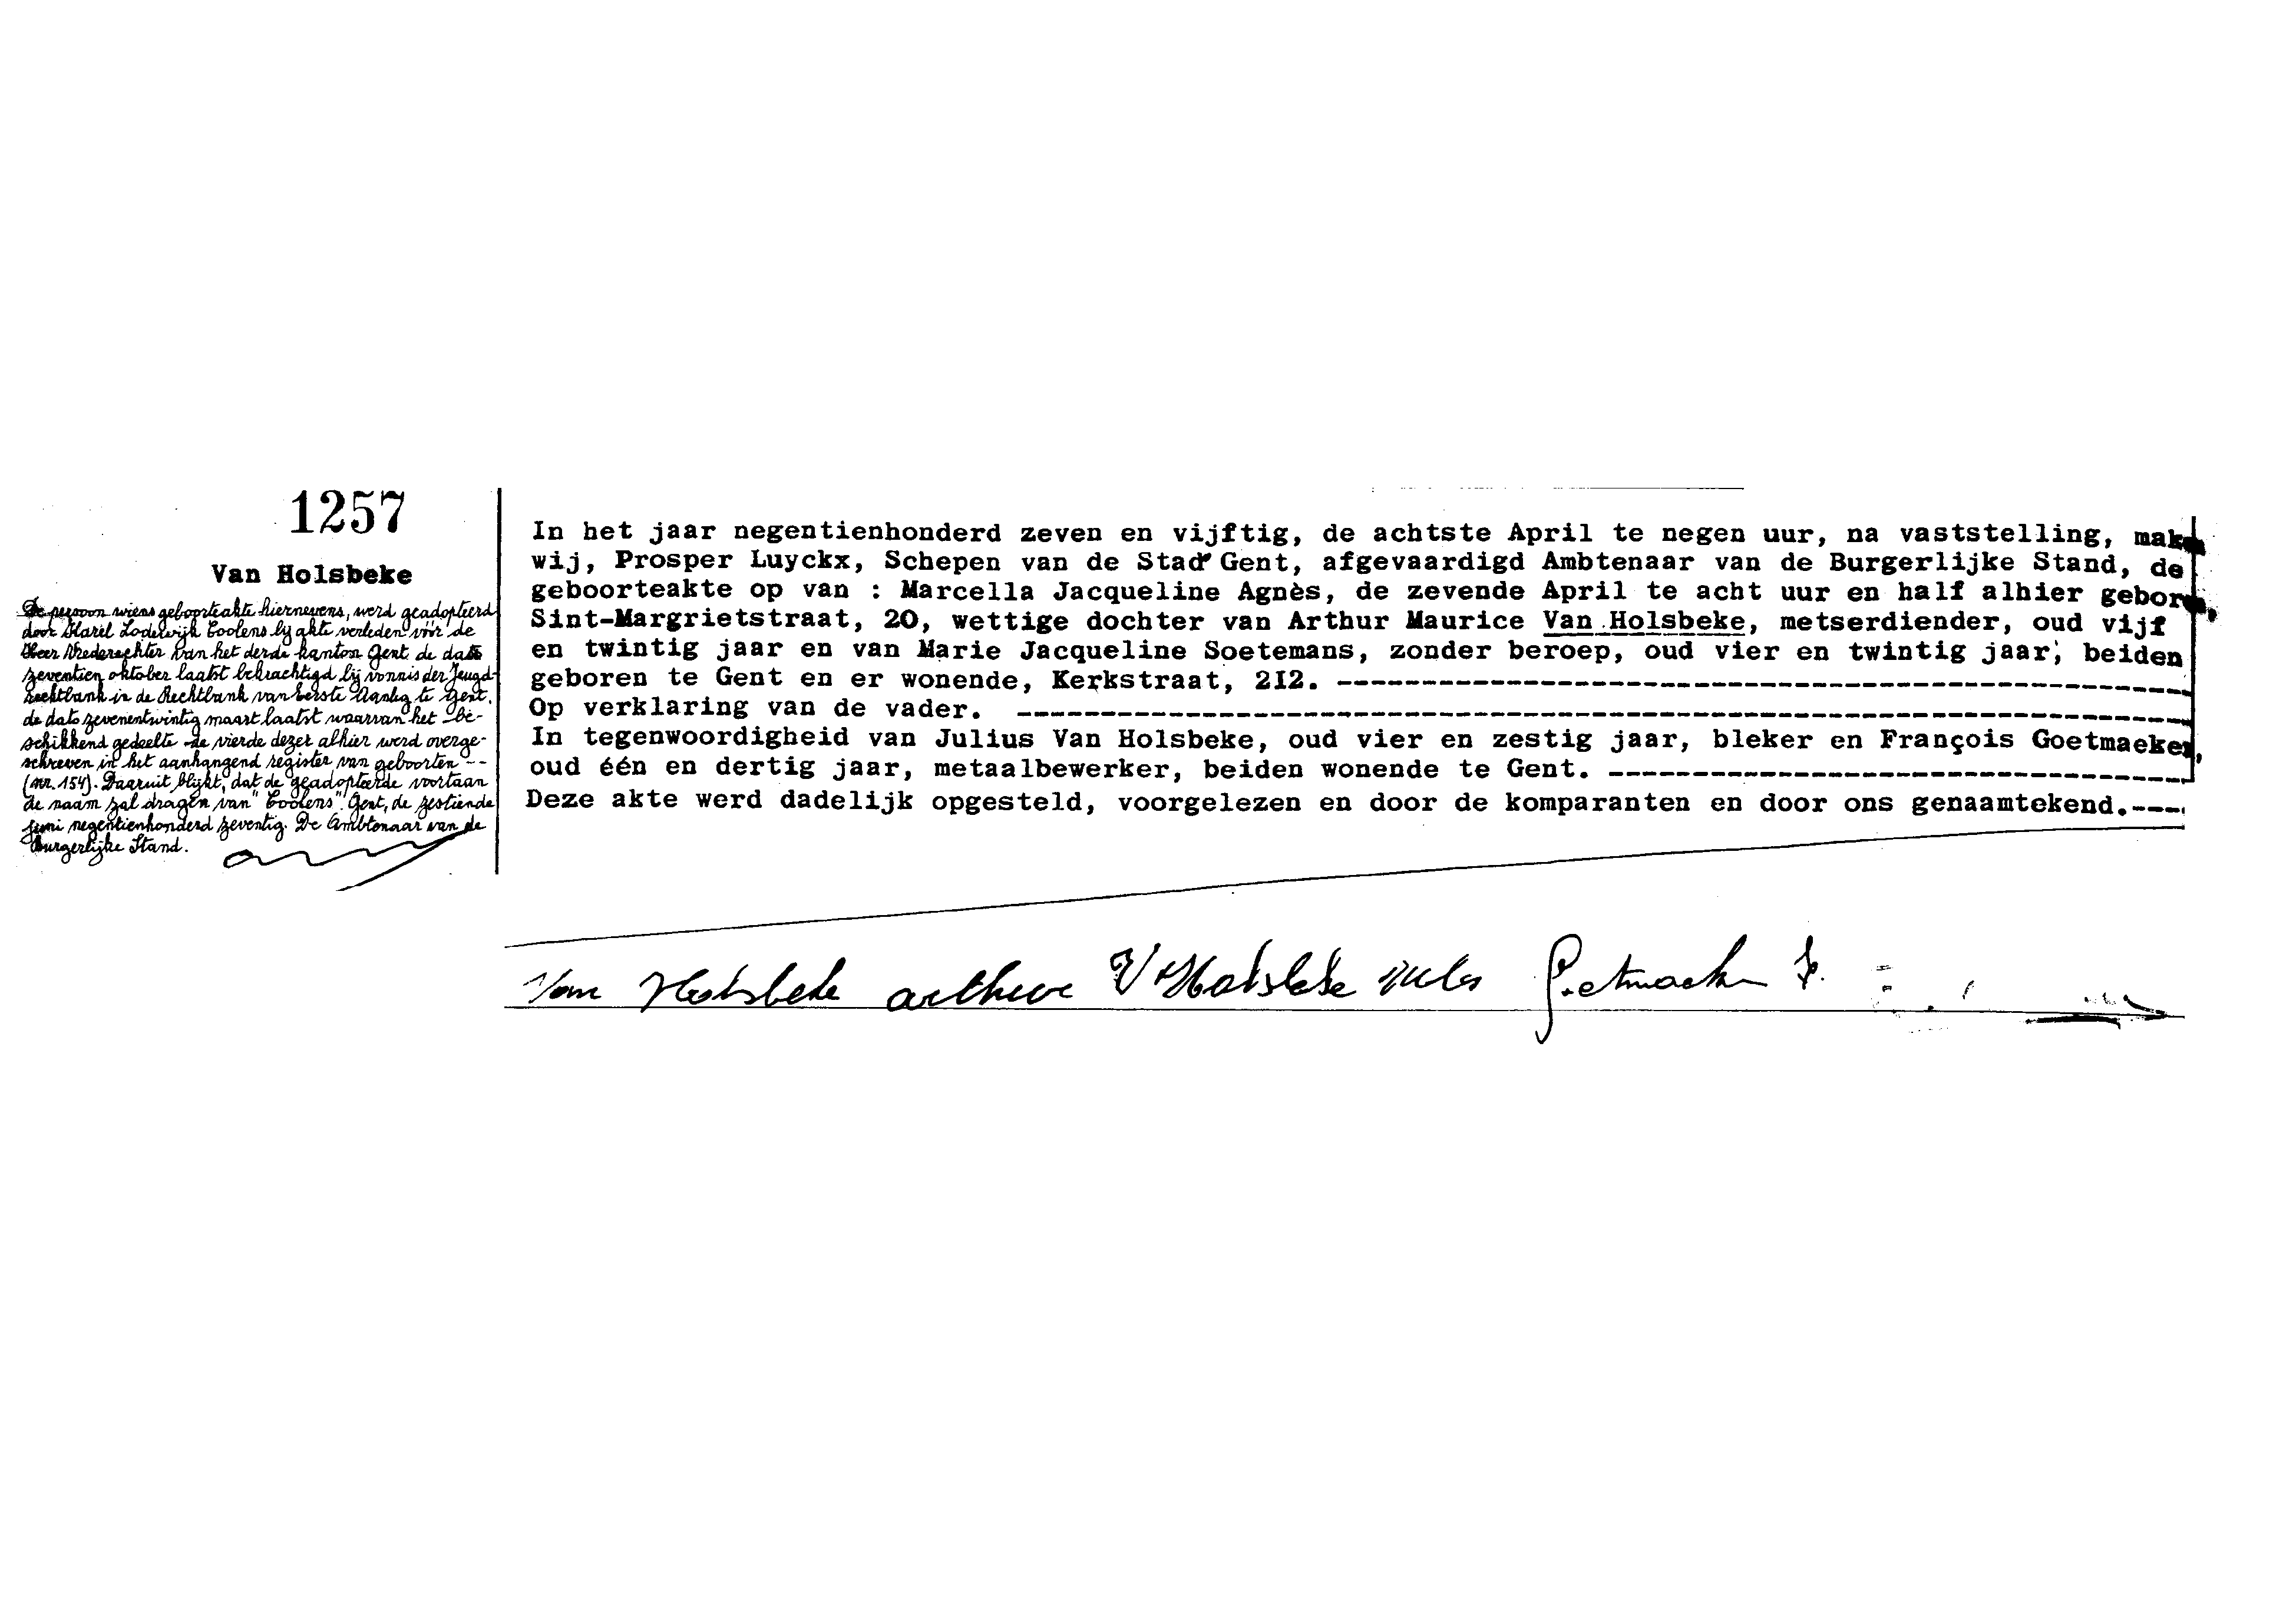 1257
Van Holsbeke
De persoon wiens geboorteakte hiernevens, werd geadopteerd
door Karel Lodewijk Coolens bij akte verleden vóór de
Heer Vrederechter van het derde kanton Gent de dato
zeventien oktober laatst bekrachtigd bij vonnis der Jeugd-
rechtbank in de Rechtbank van Eerste Aanleg te Gent,
de dato zevenentwintig maart laatst waarvan het be-
schikkend gedeelte de vierde dezer alhier werd overge-
schreven in het aanhangend register van geboorten --
(nr. 154). Daaruit blijkt, dat de geadopteerde voortaan
de naam zal dragen van "Coolens". Gent, de zestiende
juni negentienhonderd zeventig. De Ambtenaar van de
Burgerlijke Stand.
In het jaar negentienhonderd zeven en vijftig, de achtste April te negen uur, na vaststelling,
wij, Prosper Luyckx, Schepen van de Stad Gent, afgevaardigd Ambtenaar van de Burgerlijke Stand, de
geboorteakte op van : Marcella Jacqueline Agnès, de zevende April te acht uur en half alhier
Sint-Margrietstraat, 20, wettige dochter van Arthur Maurice Van Holsbeke, metserdiender, oud vijf
en twintig jaar en van Marie Jacqueline Soetemans, zonder beroep, oud vier en twintig jaar, beiden
geboren te Gent en er wonende, Kerkstraat, 212. ----------
Op verklaring van de vader. ----------
In tegenwoordigheid van Julius Van Holsbeke, oud vier en zestig jaar, bleker en François Goetmaeker,
oud één en dertig jaar, metaalbewerker, beiden wonende te Gent. ----------
Deze akte werd dadelijk opgesteld, voorgelezen en door de komparanten en door ons genaamtekend.----
Van Holsbeke arthur V Holsbeke Jules Goetmaeker F.